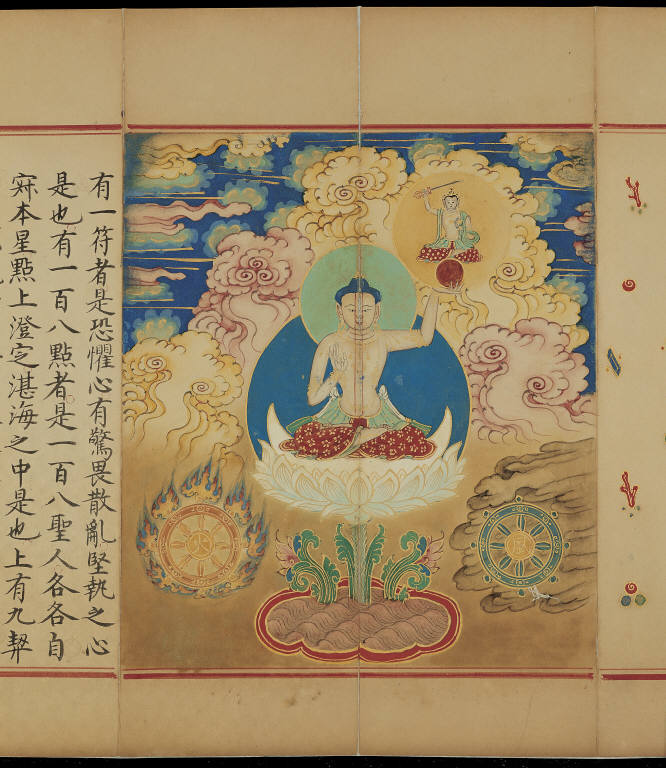 有一符者是恐懼心有驚畏散亂堅執之心
是也有一百八點者是一百八聖人各各自
寂本星點上澄定湛海之中是也上有九
火